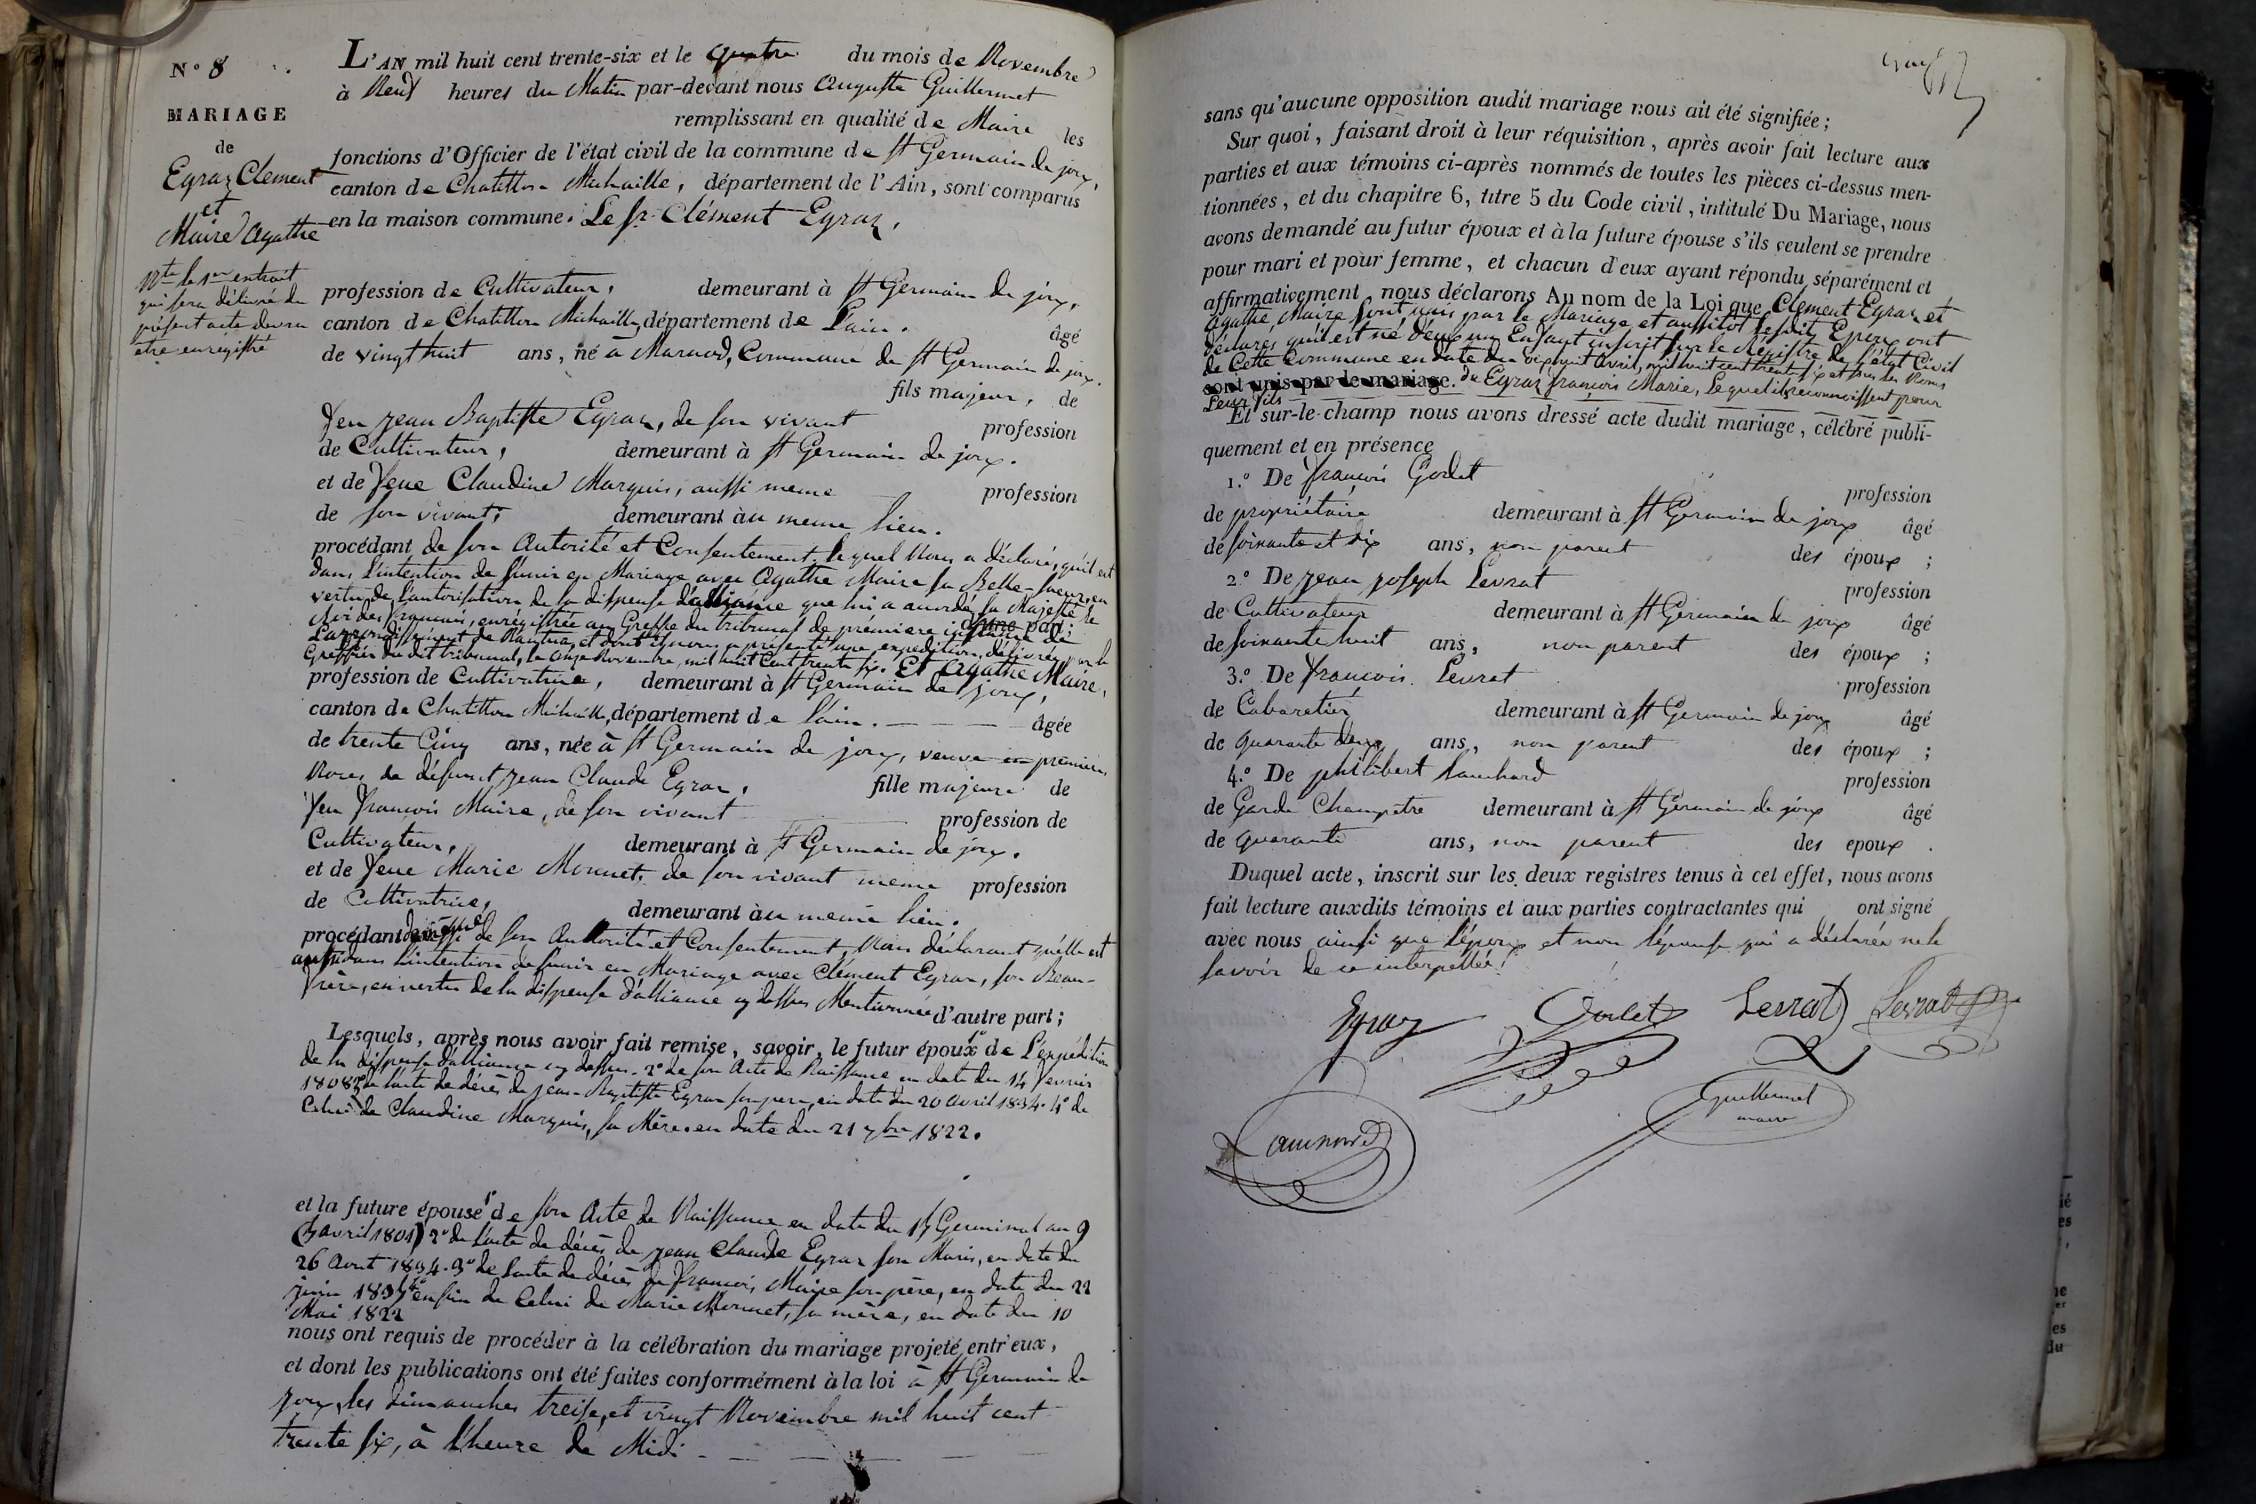 N° 8
MARIAGE
de
Egraz Clement
et
Maire Agathe
Nta le 1er extrait
qui sera délivré du
présent acte devra
etre enregistré
L'AN mil huit cent trente-six et le quatre du mois de Novembre
à Neuf heures du Matin par-devant nous Auguste Guillermet
remplissant en qualité de Maire les
fonctions d'Officier de l'état civil de la commune de St Germain de joux,
canton de Chatillon Michaille, département de l'Ain, sont comparus
en la maison commune. Le sr Clément Egraz,
profession de Cultivateur, demeurant à St Germain de joux,
canton de Chatillon Michaille, département de Lain. âgé
de vingt huit ans, né à Marnod, Commune de St Germain de joux.
fils majeur, de
feu jean Baptiste Egraz, de son vivant profession
de Cultivateur, demeurant à St Germain de joux.
et de feue Claudine Marquis, aussi meme profession
de son vivant, demeurant au meme lieu.
procédant de son Autorité et Consentement, lequel Nous a déclaré, qu'il est
dans l'intention de s'unir en Mariage avec Agathe Maire sa Belle-Sœur, en
vertu de l'autorisation de la dispense d'alliance que lui a accordé sa Majesté le
Roi des français, enrégistrée au Greffe du tribunal de prémiere instance de d'une part;
Larrondissement de Nantua, et dont il nous a présenté une expédition, délivrée par le
Greffier du dit tribunal, le onze Novembre, mil huit Cent trente six. Et Agathe Maire,
profession de Cultivatrice, demeurant à St Germain de joux,
canton de Chatillon Michaille, département de Lain. âgée
de trente Cinq ans, née à St Germain de joux, veuve en premieres
Noces de défunt jean Claude Egraz, fille majeure de
feu françois Maire, de son vivant profession de
Cultivateur, demeurant à St Germain de joux.
et de feue Marie Monnet, de son vivant meme profession
de Cultivatrice, demeurant au meme lieu.
procédant de son Autorité et Consentement, Nous déclarant qu'elle est
aussi dans l'intention de s'unir en Mariage avec Clément Egraz, son Beau-
frère, en vertu de la dispense d'alliance cy dessus Mentionnée d'autre part;
Lesquels, après nous avoir fait remise, savoir, le futur époux 1° de L'éxpédition
de la dispense d'alliance cy dessus. 2° de son Acte de Naissance en date du 14 fevrier
1808 3° de l'acte de décès de jean-Baptiste Egraz son pere, en date du 20 avril 1834. 4° de
Celui de Claudine Marquis, sa Mère, en date du 21 7bre 1822.
et la future épouse 1° de son Acte de Naissance en date du 17 Germinal an 9
(7 avril 1801) 2° de l'acte de décès de jean Claude Egraz son Maris, en date du
26 Aout 1834. 3° de l'acte de décès de françois Maire son père, en date du 22
juin 1835 4° enfin de Celui de Marie Monnet, sa mère, en date du 10
Mai 1822
nous ont requis de procéder à la célébration du mariage projeté entr'eux,
et dont les publications ont été faites conformément à la loi à St Germain de
joux, les dimanches treize, et vingt Novembre mil huit cent
trente six, à l'heure de Midi
sans qu'aucune opposition audit mariage nous ait été signifiée;
Sur quoi, faisant droit à leur réquisition, après avoir fait lecture aux
parties et aux témoins ci-après nommés de toutes les pièces ci-dessus men-
tionnées, et du chapitre 6, titre 5 du Code civil, intitulé Du Mariage, nous
avons demandé au futur époux et à la future épouse s'ils veulent se prendre
pour mari et pour femme, et chacun d'eux ayant répondu séparément et
affirmativement, nous déclarons Au nom de la Loi que Clement Egraz et
Agathe, Maire sont unis par le Mariage et aussitôt lesdit Epoux ont
déclarés qu'il est né d'eux un Enfant inscrit sur le Registre de l'état Civil
de Cette Commune en date du dixhuit Avril, mil huit cent trente six et sous les Noms
sont unis par le mariage. de Egraz françois Marie, Lequel ils reconnoissent pour
Leur fils
Et sur-le-champ nous avons dressé acte dudit mariage, célébré publi-
quement et en présence
1.° De françois Godet profession
de propriétaire demeurant à St Germain de joux âgé
de soixante et dix ans, non parent des époux ;
2.° De jean joseph Levrat profession
de Cultivateur demeurant à St Germain de joux âgé
de soixante huit ans, non parent des époux ;
3.° De françois Levrat profession
de Cabaretier demeurant à St Germain de joux âgé
de quarante deux ans, non parent des époux ;
4.° De philibert profession
de Garde Champetre demeurant à St Germain de joux âgé
de quarante ans, non parent des epoux .
Duquel acte, inscrit sur les deux registres tenus à cet effet, nous avons
fait lecture auxdits témoins et aux parties contractantes qui ont signé
avec nous ainsi que l'époux et non l'épouse qui a déclarée ne le
savoir de ce interpellée.
Egraz Godet Levrat Levrat
Guillermet
maire